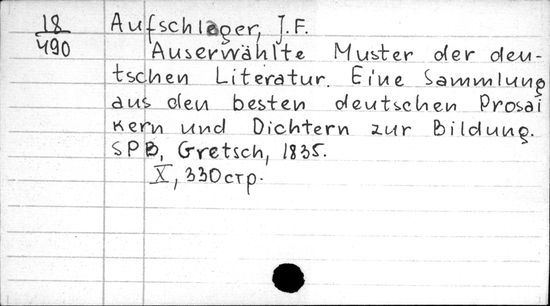 18/490
Aufschlager, J.F.
Auserwählte Muster der deu-
tschen Literatur. Eine Sammlung
aus den besten deutschen Prosai
kern und Dichtern zur Bildung.
SPB, Gretsch, 1835.
X, 330 стр.